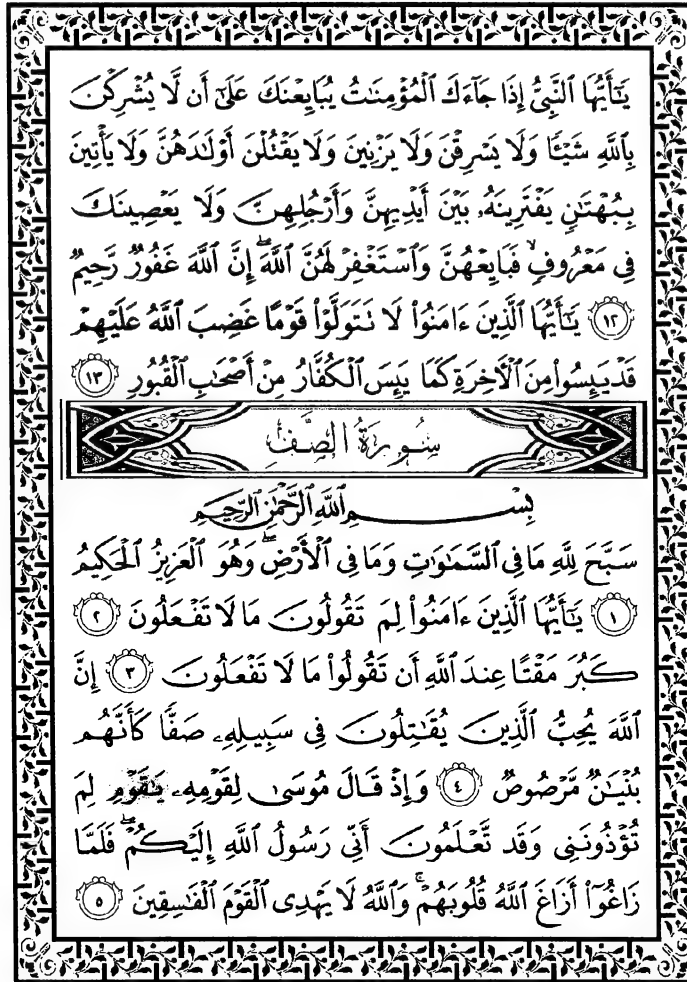 يَٰٓأَيُّهَا ٱلنَّبِىُّ إِذَا جَآءَكَ ٱلْمُؤْمِنَٰتُ يُبَايِعْنَكَ عَلَىٰٓ أَن لَّا يُشْرِكْنَ
بِٱللَّهِ شَيْـًٔا وَلَا يَسْرِقْنَ وَلَا يَزْنِينَ وَلَا يَقْتُلْنَ أَوْلَٰدَهُنَّ وَلَا يَأْتِينَ
بِبُهْتَٰنٍ يَفْتَرِينَهُۥ بَيْنَ أَيْدِيهِنَّ وَأَرْجُلِهِنَّ وَلَا يَعْصِينَكَ
فِى مَعْرُوفٍ ۙ فَبَايِعْهُنَّ وَٱسْتَغْفِرْ لَهُنَّ ٱللَّهَ ۖ إِنَّ ٱللَّهَ غَفُورٌ رَّحِيمٌ
١٢ يَٰٓأَيُّهَا ٱلَّذِينَ ءَامَنُوا۟ لَا تَتَوَلَّوْا۟ قَوْمًا غَضِبَ ٱللَّهُ عَلَيْهِمْ
قَدْ يَئِسُوا۟ مِنَ ٱلْءَاخِرَةِ كَمَا يَئِسَ ٱلْكُفَّارُ مِنْ أَصْحَٰبِ ٱلْقُبُورِ ١٣
سُورَةُ الصَّفِّ
بِسْمِ ٱللَّهِ ٱلرَّحْمَٰنِ ٱلرَّحِيمِ
سَبَّحَ لِلَّهِ مَا فِى ٱلسَّمَٰوَٰتِ وَمَا فِى ٱلْأَرْضِ ۖ وَهُوَ ٱلْعَزِيزُ ٱلْحَكِيمُ
١ يَٰٓأَيُّهَا ٱلَّذِينَ ءَامَنُوا۟ لِمَ تَقُولُونَ مَا لَا تَفْعَلُونَ ٢
كَبُرَ مَقْتًا عِندَ ٱللَّهِ أَن تَقُولُوا۟ مَا لَا تَفْعَلُونَ ٣ إِنَّ
ٱللَّهَ يُحِبُّ ٱلَّذِينَ يُقَٰتِلُونَ فِى سَبِيلِهِۦ صَفًّا كَأَنَّهُم
بُنْيَٰنٌ مَّرْصُوصٌ ٤ وَإِذْ قَالَ مُوسَىٰ لِقَوْمِهِۦ يَٰقَوْمِ لِمَ
تُؤْذُونَنِى وَقَد تَّعْلَمُونَ أَنِّى رَسُولُ ٱللَّهِ إِلَيْكُمْ ۖ فَلَمَّا
زَاغُوٓا۟ أَزَاغَ ٱللَّهُ قُلُوبَهُمْ ۚ وَٱللَّهُ لَا يَهْدِى ٱلْقَوْمَ ٱلْفَٰسِقِينَ ٥